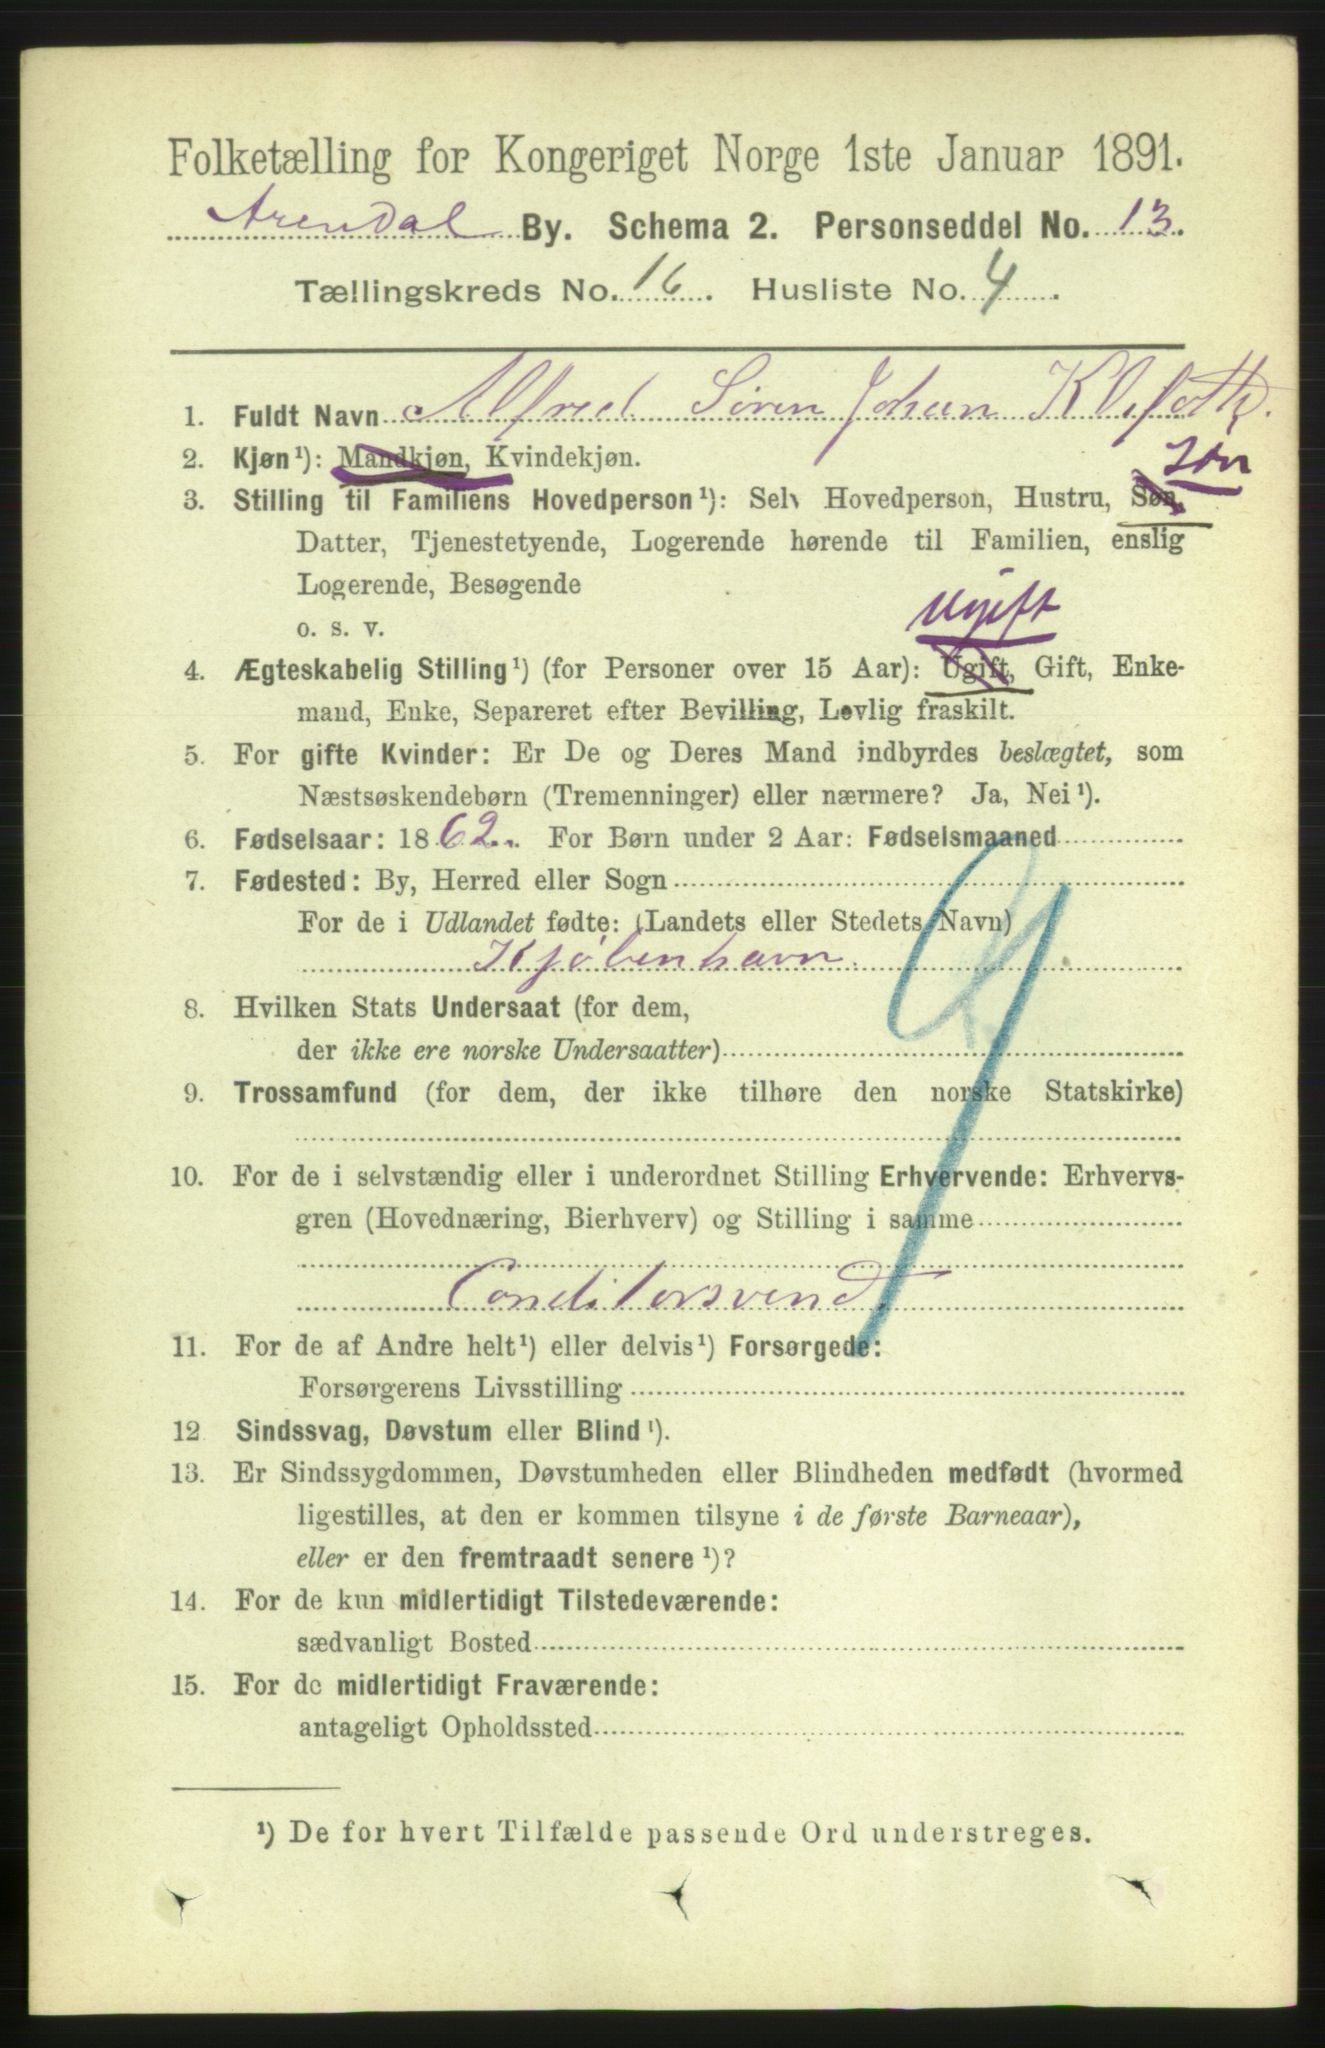 Folketælling for Kongeriget Norge 1ste Januar 1891.
Arendal By. Schema 2. Personseddel No. 13.
Tællingskreds No. 16. Husliste No. 4.
1. Fuldt Navn Alfred Søren Johan Klefoth.
2. Kjøn¹): Mandkjøn, Kvindekjøn.
Søn
3. Stilling til Familiens Hovedperson¹): Selv Hovedperson, Hustru, Søn,
Datter, Tjenestetyende, Logerende hørende til Familien, enslig
Logerende, Besøgende
o. s. v.
Ugift
4. Ægteskabelig Stilling¹) (for Personer over 15 Aar): Ugift, Gift, Enke-
mand, Enke, Separeret efter Bevilling, Lovlig fraskilt.
5. For gifte Kvinder: Er De og Deres Mand indbyrdes beslægtet, som
Næstsøskendebørn (Tremenninger) eller nærmere? Ja, Nei¹).
6. Fødselsaar: 1862. For Børn under 2 Aar: Fødselsmaaned
7. Fødested: By, Herred eller Sogn
For de i Udlandet fødte: (Landets eller Stedets Navn)
Kjøbenhavn.
8. Hvilken Stats Undersaat (for dem,
der ikke ere norske Undersaatter)
9. Trossamfund (for dem, der ikke tilhøre den norske Statskirke)
10. For de i selvstændig eller i underordnet Stilling Erhvervende: Erhvervs-
gren (Hovednæring, Bierhverv) og Stilling i samme
Conditorsvend
11. For de af Andre helt¹) eller delvis¹) Forsørgede:
Forsørgerens Livsstilling
12 Sindssvag, Døvstum eller Blind¹).
13. Er Sindssygdommen, Døvstumheden eller Blindheden medfødt (hvormed
ligestilles, at den er kommen tilsyne i de første Barneaar),
eller er den fremtraadt senere¹)?
14. For de kun midlertidigt Tilstedeværende:
sædvanligt Bosted
15. For de midlertidigt Fraværende:
antageligt Opholdssted
¹) De for hvert Tilfælde passende Ord understreges.